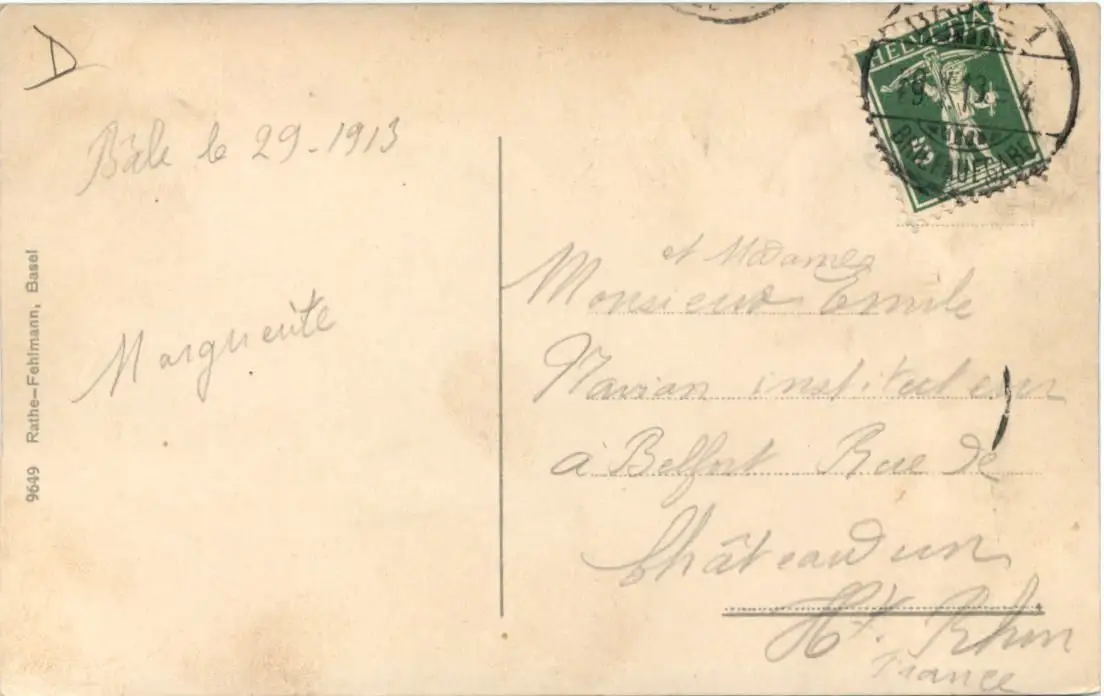 D
Bâle le 29-1913
Marguerite
9649 Rathe-Fehlmann, Basel
HELVETIA
BRIEFAUFGABE
et Madame
Monsieur Emile
Navian instituteur
à Belfort Rue de
Châteaudun
Ht. Rhin
France